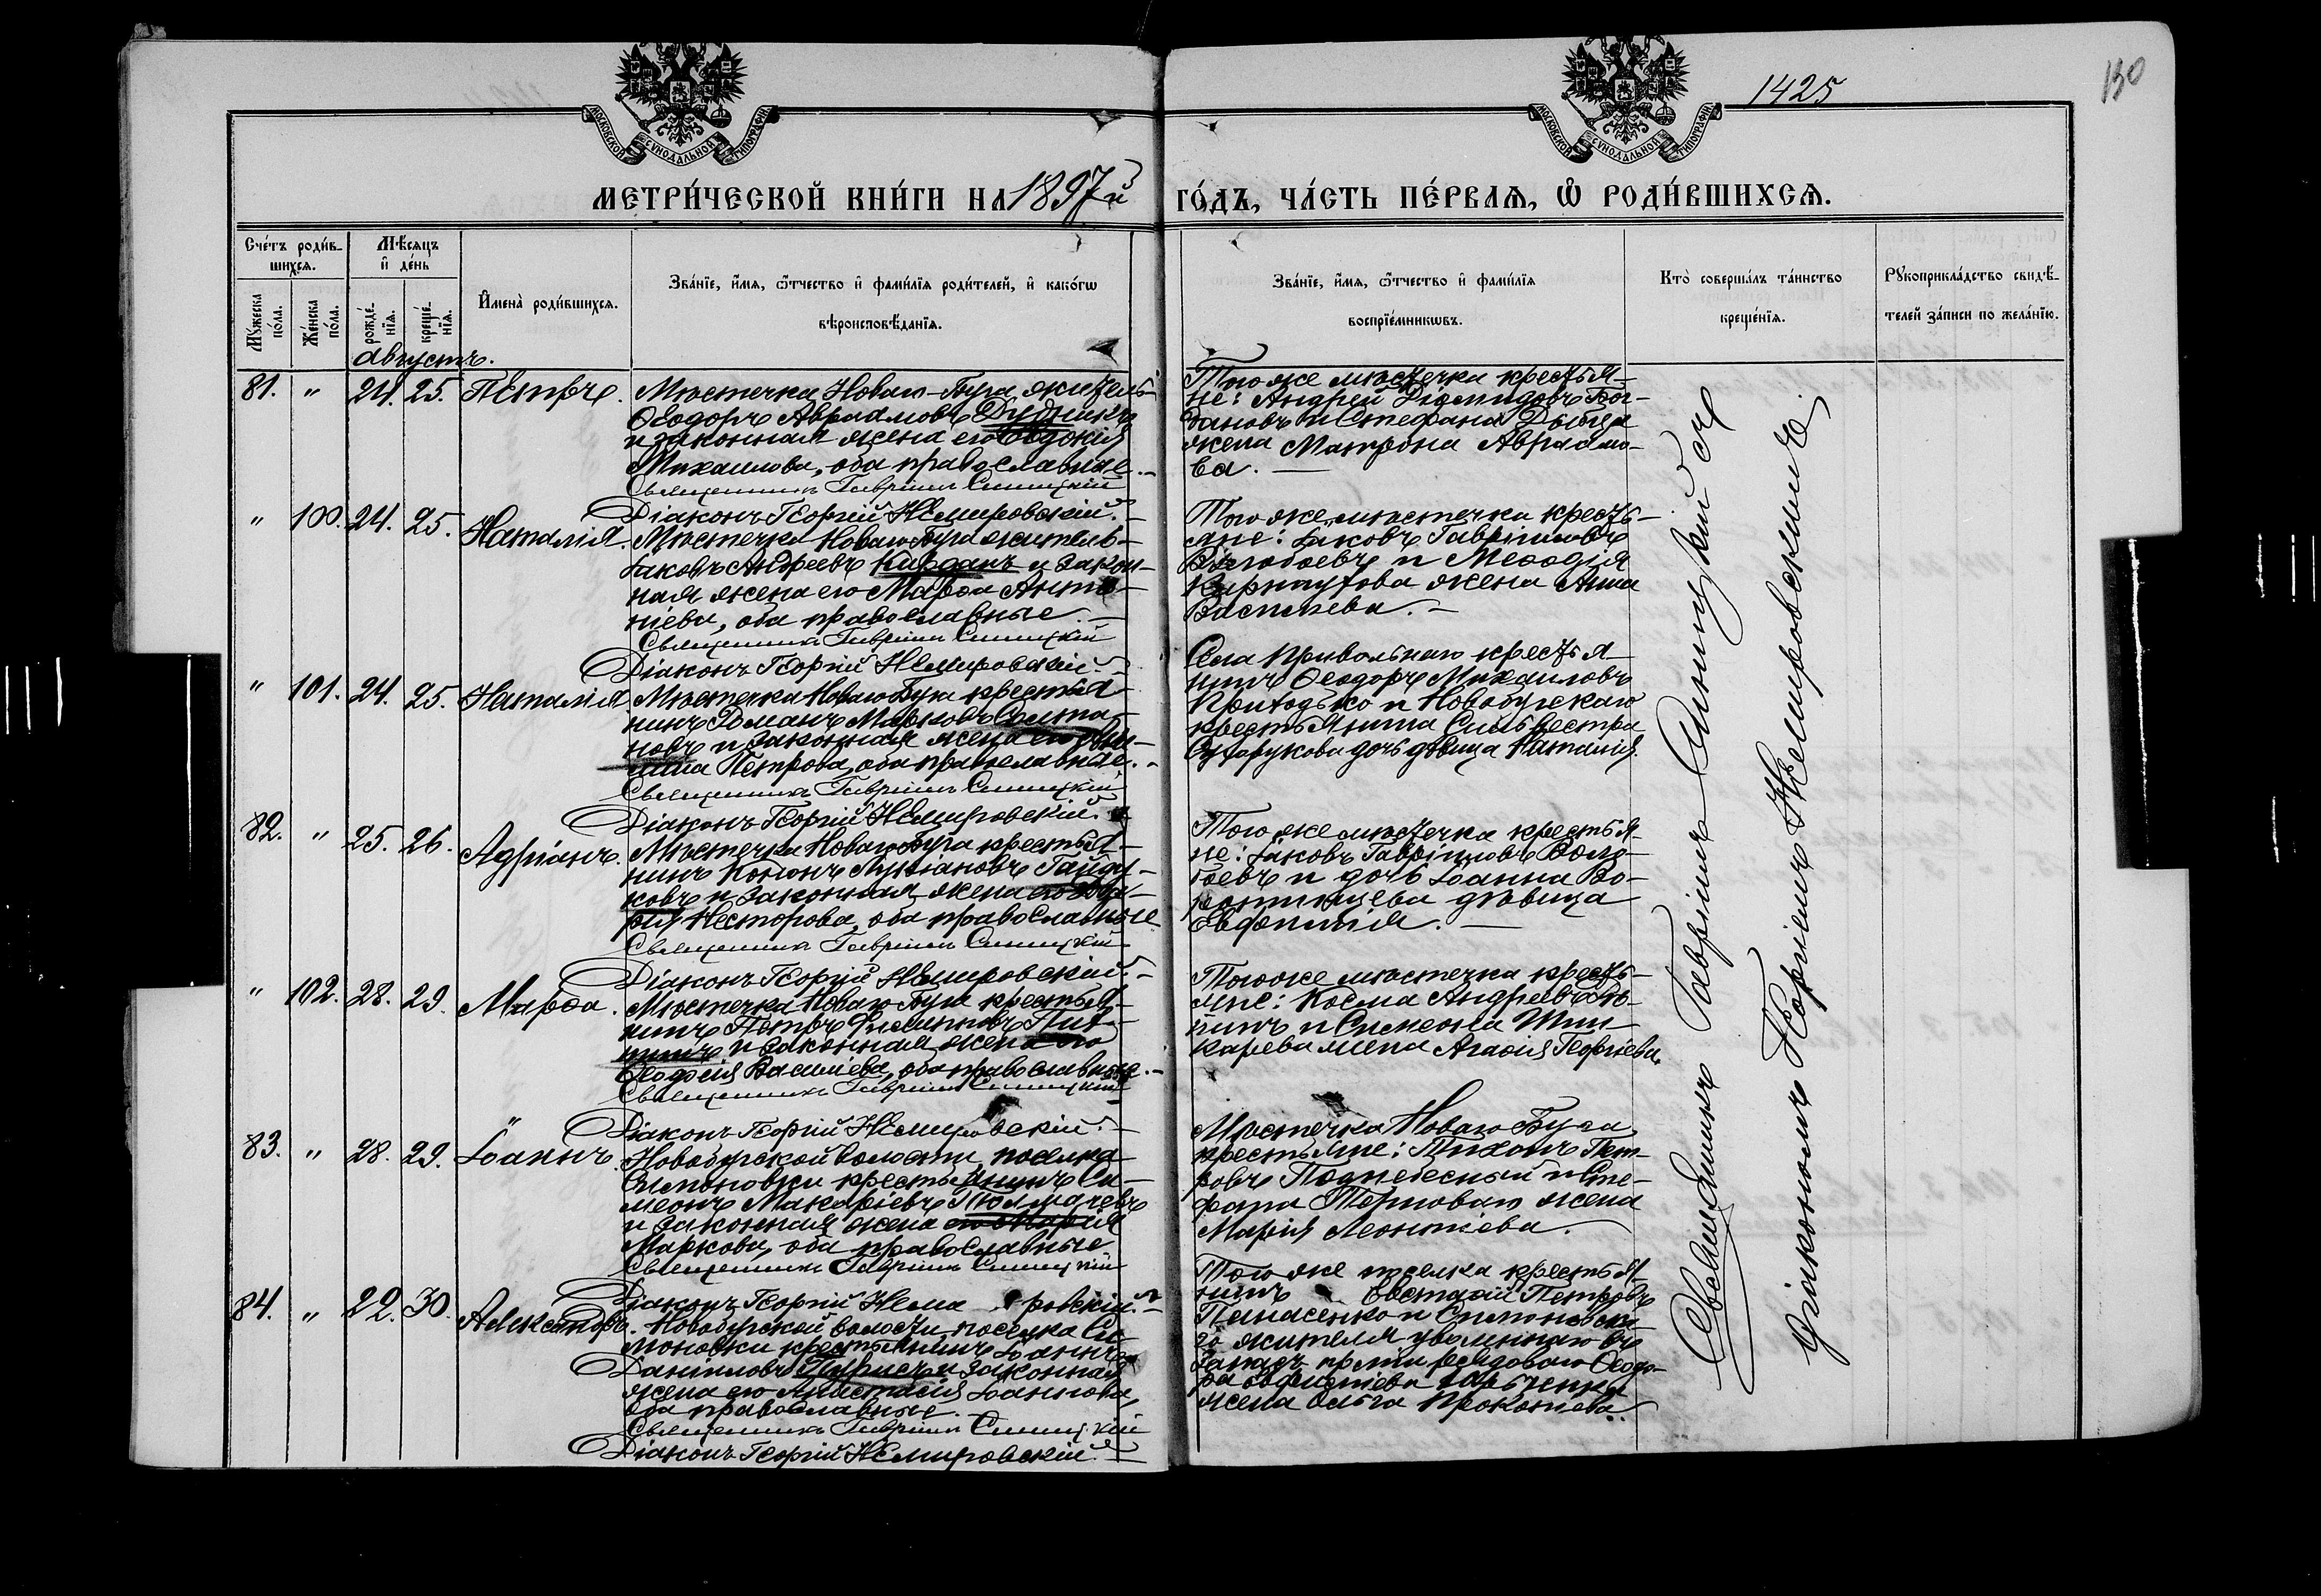 1425
130
МОСКОВСКОЙ СУНОДАЛЬНОЙ ТИПОГРАФІИ
МОСКОВСКОЙ СУНОДАЛЬНОЙ ТИПОГРАФІИ
МЕТРИ́ЧЕСКОЙ КНИ́ГИ НА 1897й ГО́ДЪ, ЧА́СТЬ ПЕ́РВАѦ, Ѽ РОДИ́ВШИХСѦ.
Сче́тъ роди́в-
шихсѧ.
Мѣ́сяцъ
и҆ де́нь
Мꙋ́жеска по́ла.
Же́нска по́ла.
рожде́-
нїѧ.
креще́-
нїѧ.
И҆мена̀ роди́вшихсѧ.
Зва́нїе, и҆́мѧ, ѻ҆́тчество и҆ фами́лїѧ роди́телей, и҆ како́гѡ
вѣроисповѣ́данїѧ.
Зва́нїе, и҆́мѧ, ѻ҆́тчество и҆ фами́лїѧ
воспрїе́мникѡвъ.
Кто̀ соверша́лъ та́инство
креще́нїѧ.
Рꙋкоприкла́дство свидѣ́-
телей за́писи по жела́нїю.
Августъ.
81. " 24. 25. Петръ.
Мѣстечка Новаго-Буга житель
Ѳеодоръ Авраамовъ Дудникъ
и законная жена его Евдокія
Михаилова, оба православные.
Священникъ Гавріилъ Синицкій
Діаконъ Георгій Немировскій.
Того же мѣстечка крестья-
не: Андрей Діомидовъ Бог-
дановъ и Стефана Дыбца
жена Матрона Авраамо-
ва.
" 100. 24. 25. Наталія.
Мѣстечка Новаго Буга житель
Іаковъ Андреевъ Кирданъ и закон-
ная жена его Марѳа Анто-
ніева, оба православные.
Священникъ Гавріилъ Синицкій
Діаконъ Георгій Немировскій.
Того же мѣстечка кресть-
яне: Іаковъ Гавріиловъ
и Меѳодія
жена Анна
Васильева.
" 101. 24. 25. Наталія
Мѣстечка Новаго Буга крестья-
нинъ Романъ Марковъ Салта-
новъ и законная жена его
Петрова, оба православные.
Священникъ Гавріилъ Синицкій
Діаконъ Георгій Немировскій.
Села Привольнаго крестья-
нинъ Ѳеодоръ Михаиловъ
Приходько и Новобугскаго
крестьянина Сильвестра
дочь дѣвица Наталія.
82. " 25. 26. Адріанъ.
Мѣстечка Новаго Буга крестья-
нинъ Кононъ Лукіановъ Гайду-
ковъ и законная жена его
Несторова, оба православные
Священникъ Гавріилъ Синицкій
Діаконъ Георгій Немировскій.
Того же мѣстечка крестья-
не: Іаковъ Гавріиловъ
и дочь Іоанна Во-
ронтицева дѣвица
Евфимія.
" 102. 28. 29. Марѳа.
Мѣстечка Новаго Буга крестья-
нинъ Петръ Филипповъ
и законная жена его
Ѳеодосія Василіева, оба православные.
Священникъ Гавріилъ Синицкій
Діаконъ Георгій Немировскій.
Того же мѣстечка кресть-
яне: Косма Андреевъ
и Симеона Шин-
карева жена Агаѳія Георгіева.
83. " 28. 29. Іоаннъ.
Новобугской волости поселка
Симоновки крестьянинъ Си-
меонъ Макаріевъ Толмачевъ
и законная жена его Марія
Маркова, оба православные
Священникъ Гавріилъ Синицкій
Діаконъ Георгій Немировскій.
Мѣстечка Новаго Буга
крестьяне: Тихонъ Пет-
ровъ Поднебесный и Сте-
фана Терноваго жена
Марія Леонтіева.
84. " 22. 30. Александръ.
Новобугской волости поселка Си-
моновки крестьянинъ Іоаннъ
Даніиловъ и законная
жена его Анастасія Іоаннова,
оба православные.
Священникъ Гавріилъ Синицкій
Діаконъ Георгій Немировскій.
Того же поселка крестья-
нинъ Евстаѳій Петровъ
Панасенко и Симоновска-
го жителя уволеннаго въ
запасъ армии рядоваго Ѳеодо-
ра
жена Ольга Прокопіева.
Священникъ Гавріилъ Синицкій съ
діакономъ Георгіемъ Немировскимъ.